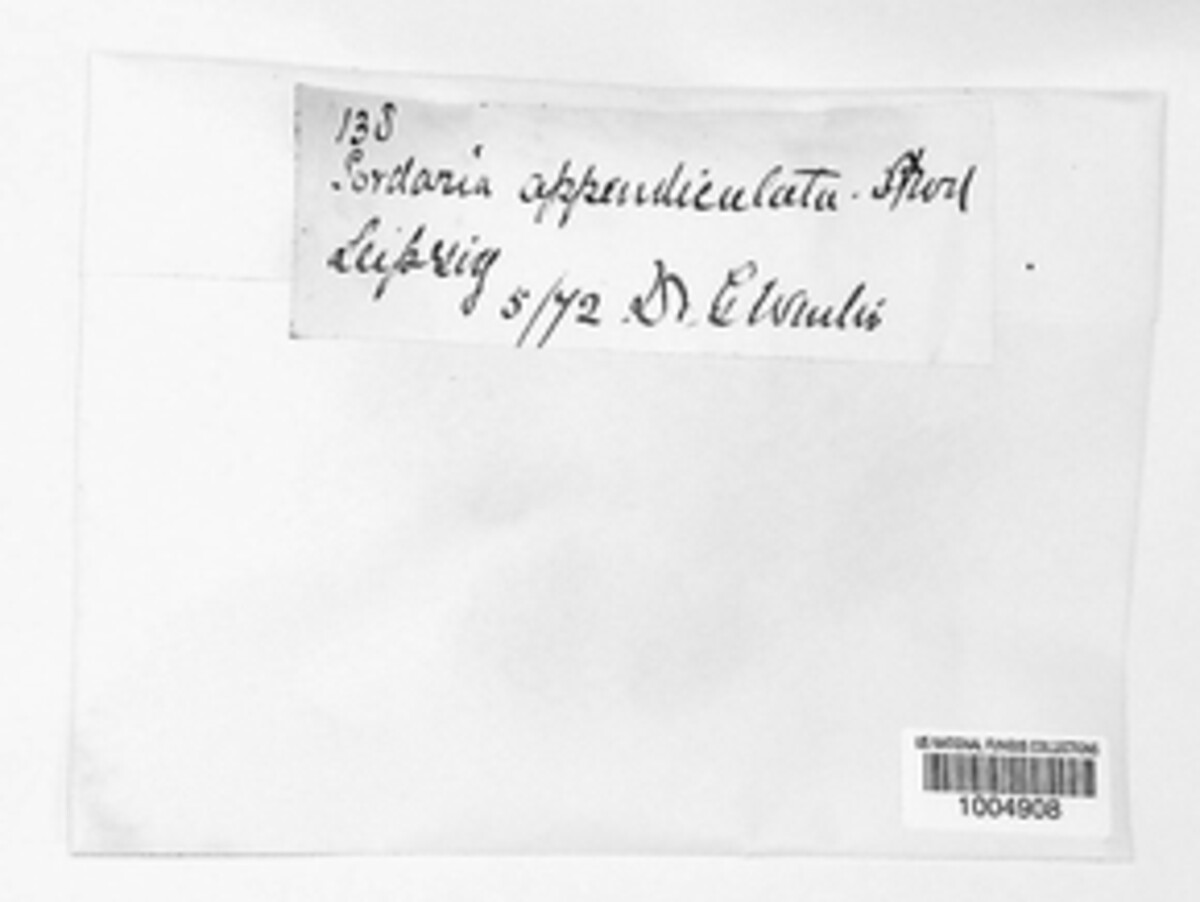 138
Sordaria appendiculata.
Leipzig 5/72 Dr.
US NATIONAL FUNGUS COLLECTIONS
1004908